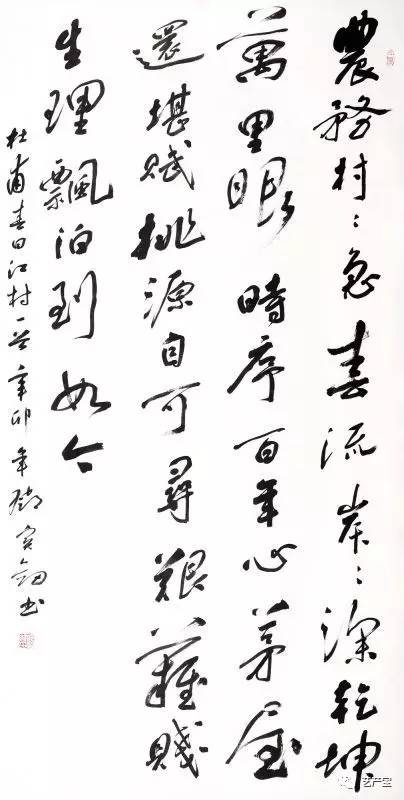 農務村〻急春流岸〻深乾坤
萬里眼時序百年心茅屋
還堪賦桃源自可尋艱難賤
生理飄泊到如今
杜甫春日江村一首辛卯年鄧寶劍書
艺产宝